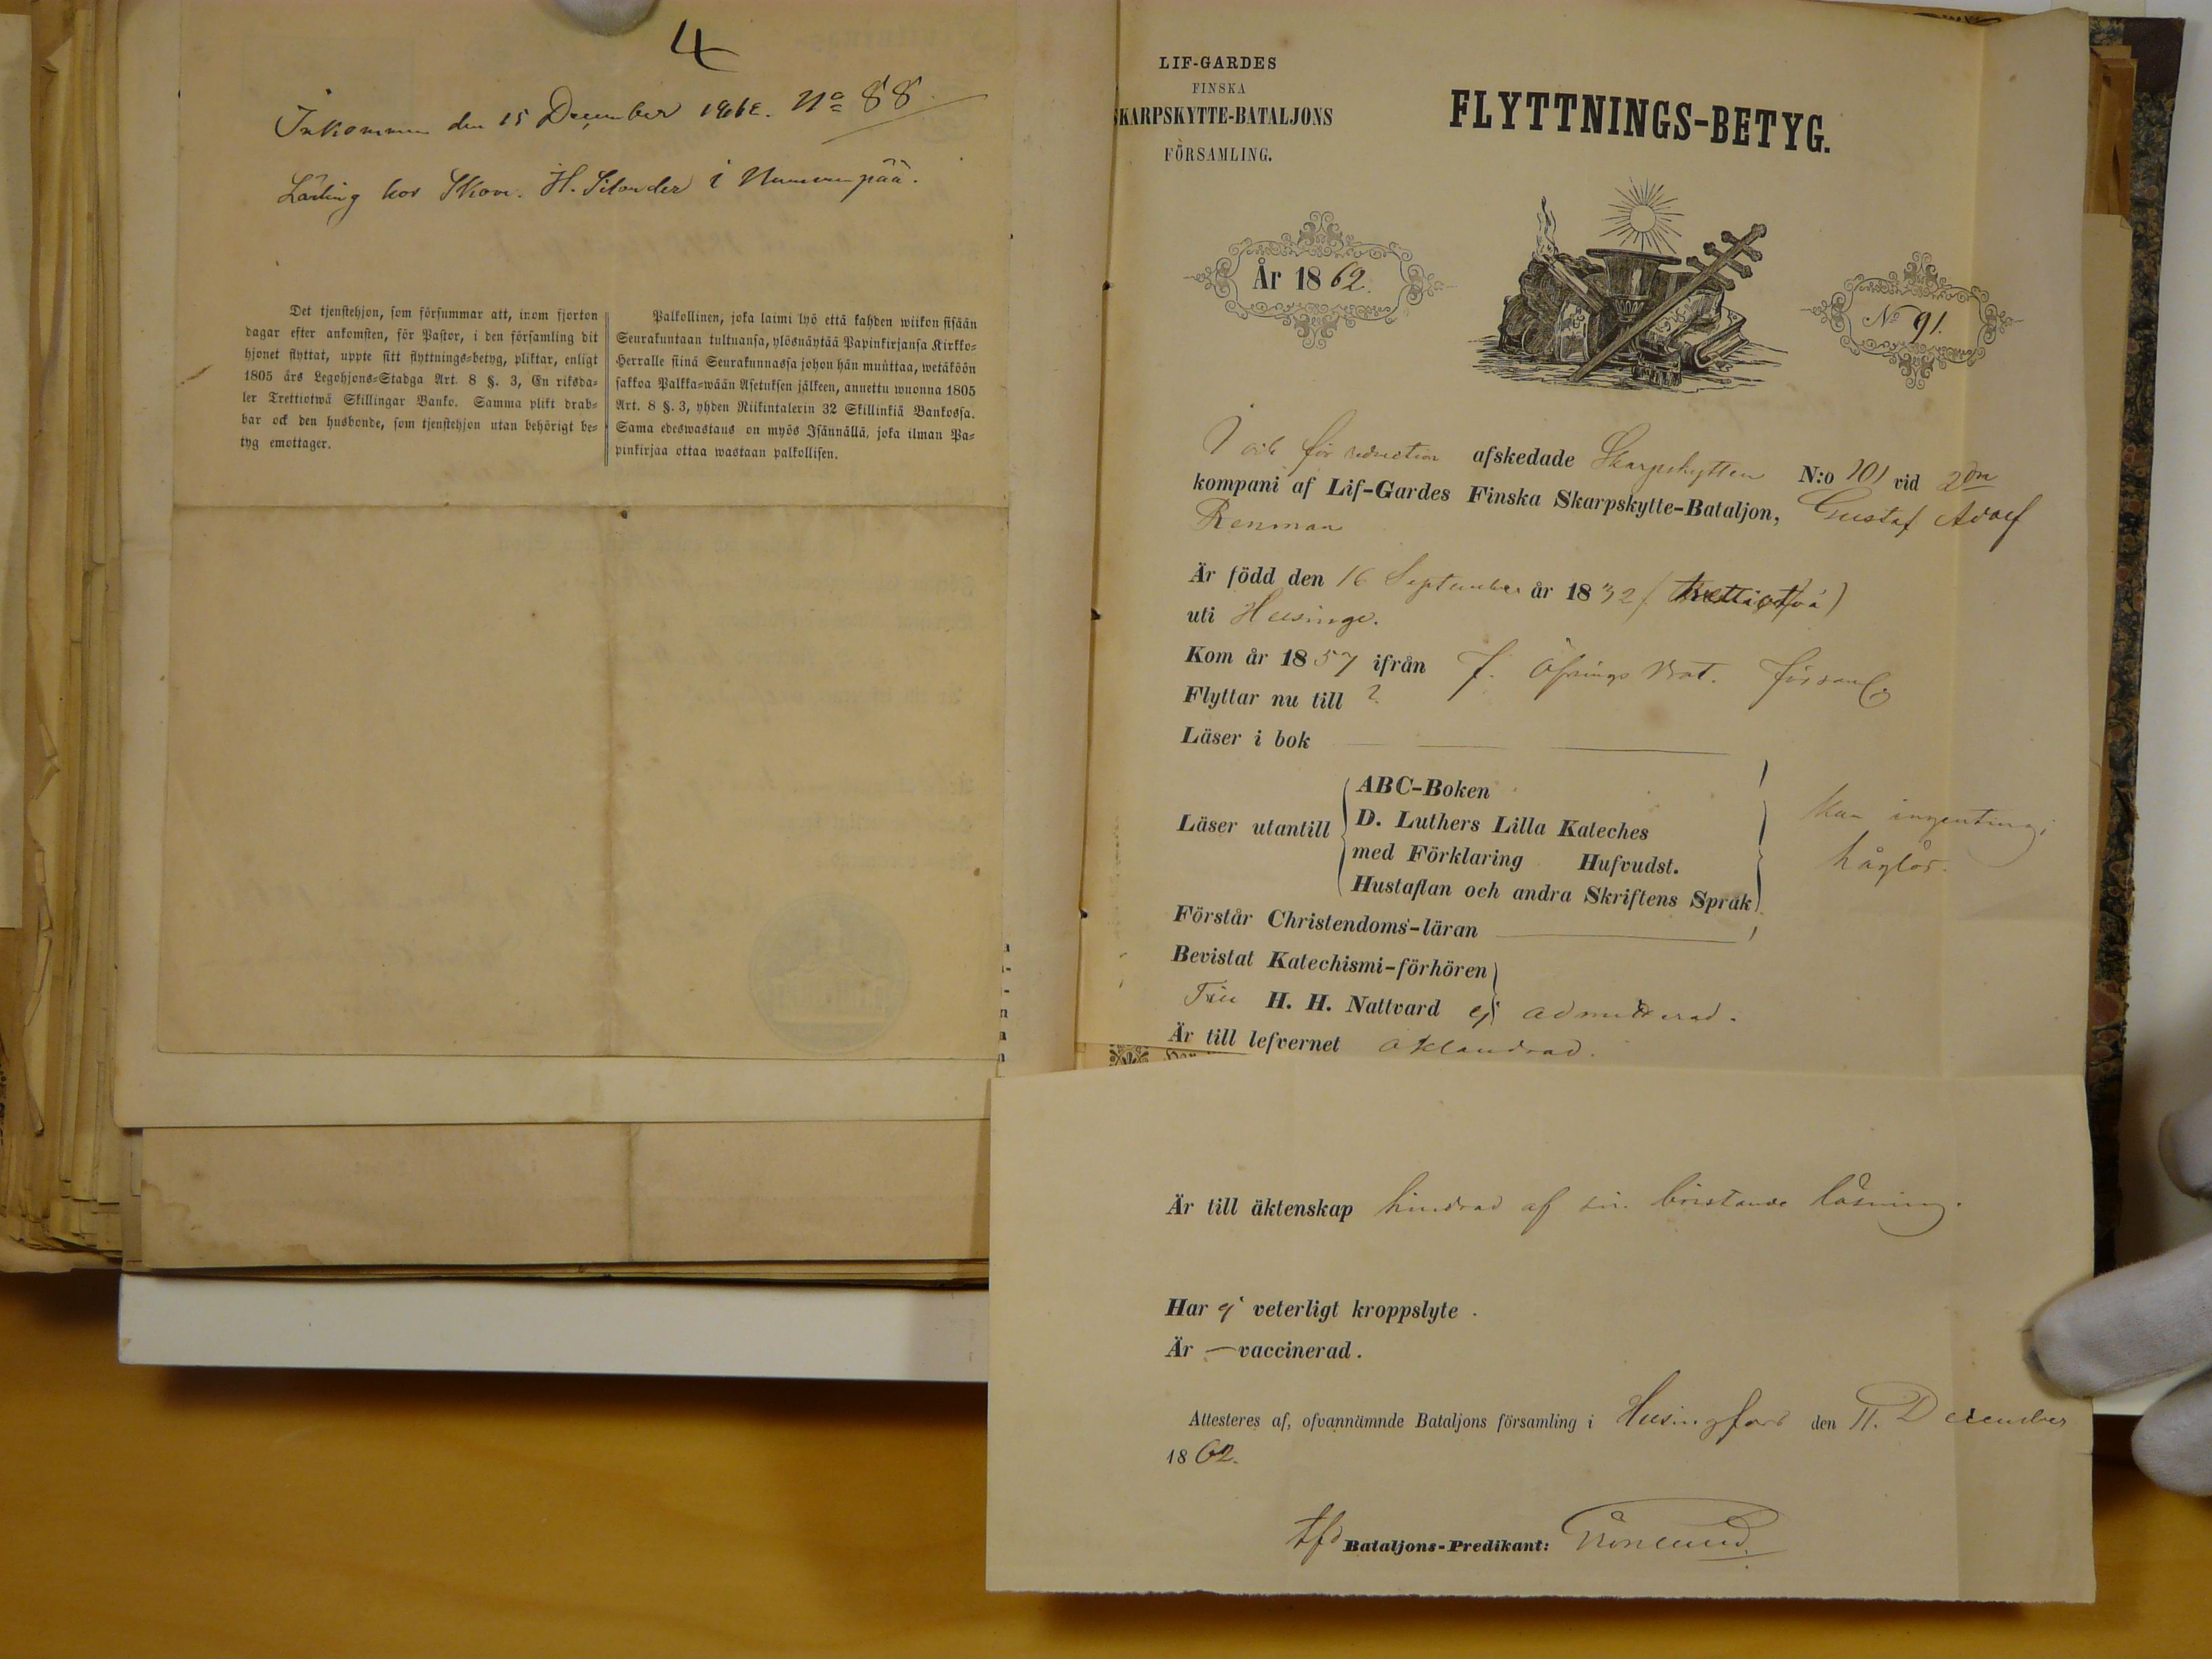 4
Inkommen den 15 December 1862. No 88
Lärling hos Skom. H. Silander i Nummenpää.
Det tjenstehjon, som försummar att, inom fjorton
dagar efter ankomsten, för Pastor, i den församling dit
hjonet flyttat, uppte sitt flyttnings-betyg, pliktar, enligt
1805 års Legohjons-Stadga Art. 8 §. 3, En riksda-
ler Trettiotwå Skillingar Banko. Samma plikt drab-
bar ock den husbonde, som tjenstehjon utan behörigt be-
tyg emottager.
Palkollinen, joka laimi lyö että kahden wiikon sisään
Seurakuntaan tultuansa, ylösnäytää Papinkirjansa Kirkko-
Herralle siinä Seurakunnassa johon hän muuttaa, wetäköön
sakkoa Palkka-wään Asetuksen jälkeen, annettu wuonna 1805
Art. 8 §. 3, yhden Riikintalerin 32 Skillinkiä Bankossa.
Sama edeswastaus on myös Isännällä, joka ilman Pa-
pinkirjaa ottaa wastaan palkollisen.
LIF-GARDES
FINSKA
SKARPSKYTTE-BATALJONS
FÖRSAMLING.
FLYTTNINGS-BETYG.
År 1862.
No 91.
för reduction afskedade Skarpskytten N:o 101 vid 2dra
kompani af Lif-Gardes Finska Skarpskytte-Bataljon, Gustaf Adolf
Renman
Är född den 16 September år 1832 (trettiotvå)
uti Helsinge.
Kom år 1857 ifrån f. Öfnings Bat. förssaml.
Flyttar nu till ?
Läser i bok
Läser utantill
ABC-Boken
D. Luthers Lilla Kateches
med Förklaring Hufvudst.
Hustaflan och andra Skriftens Språk
kan ingenting,
håglös.
Förstår Christendoms-läran
Bevistat Katechismi-förhören
Till H. H. Nattvard ej admitterad.
Är till lefvernet oklandrad.
Är till äktenskap hindrad af sin bristande läsning.
Har ej veterligt kroppslyte.
Är — vaccinerad.
Attesteres af, ofvannämnde Bataljons församling i Helsingfors den 11. December
1862.
tfd Bataljons-Predikant: Grönlund